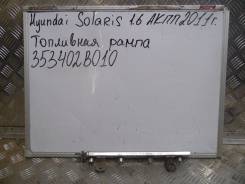 Hyundai Solaris 1.6 АКПП 2011г.
Топливная рампа
353402B010